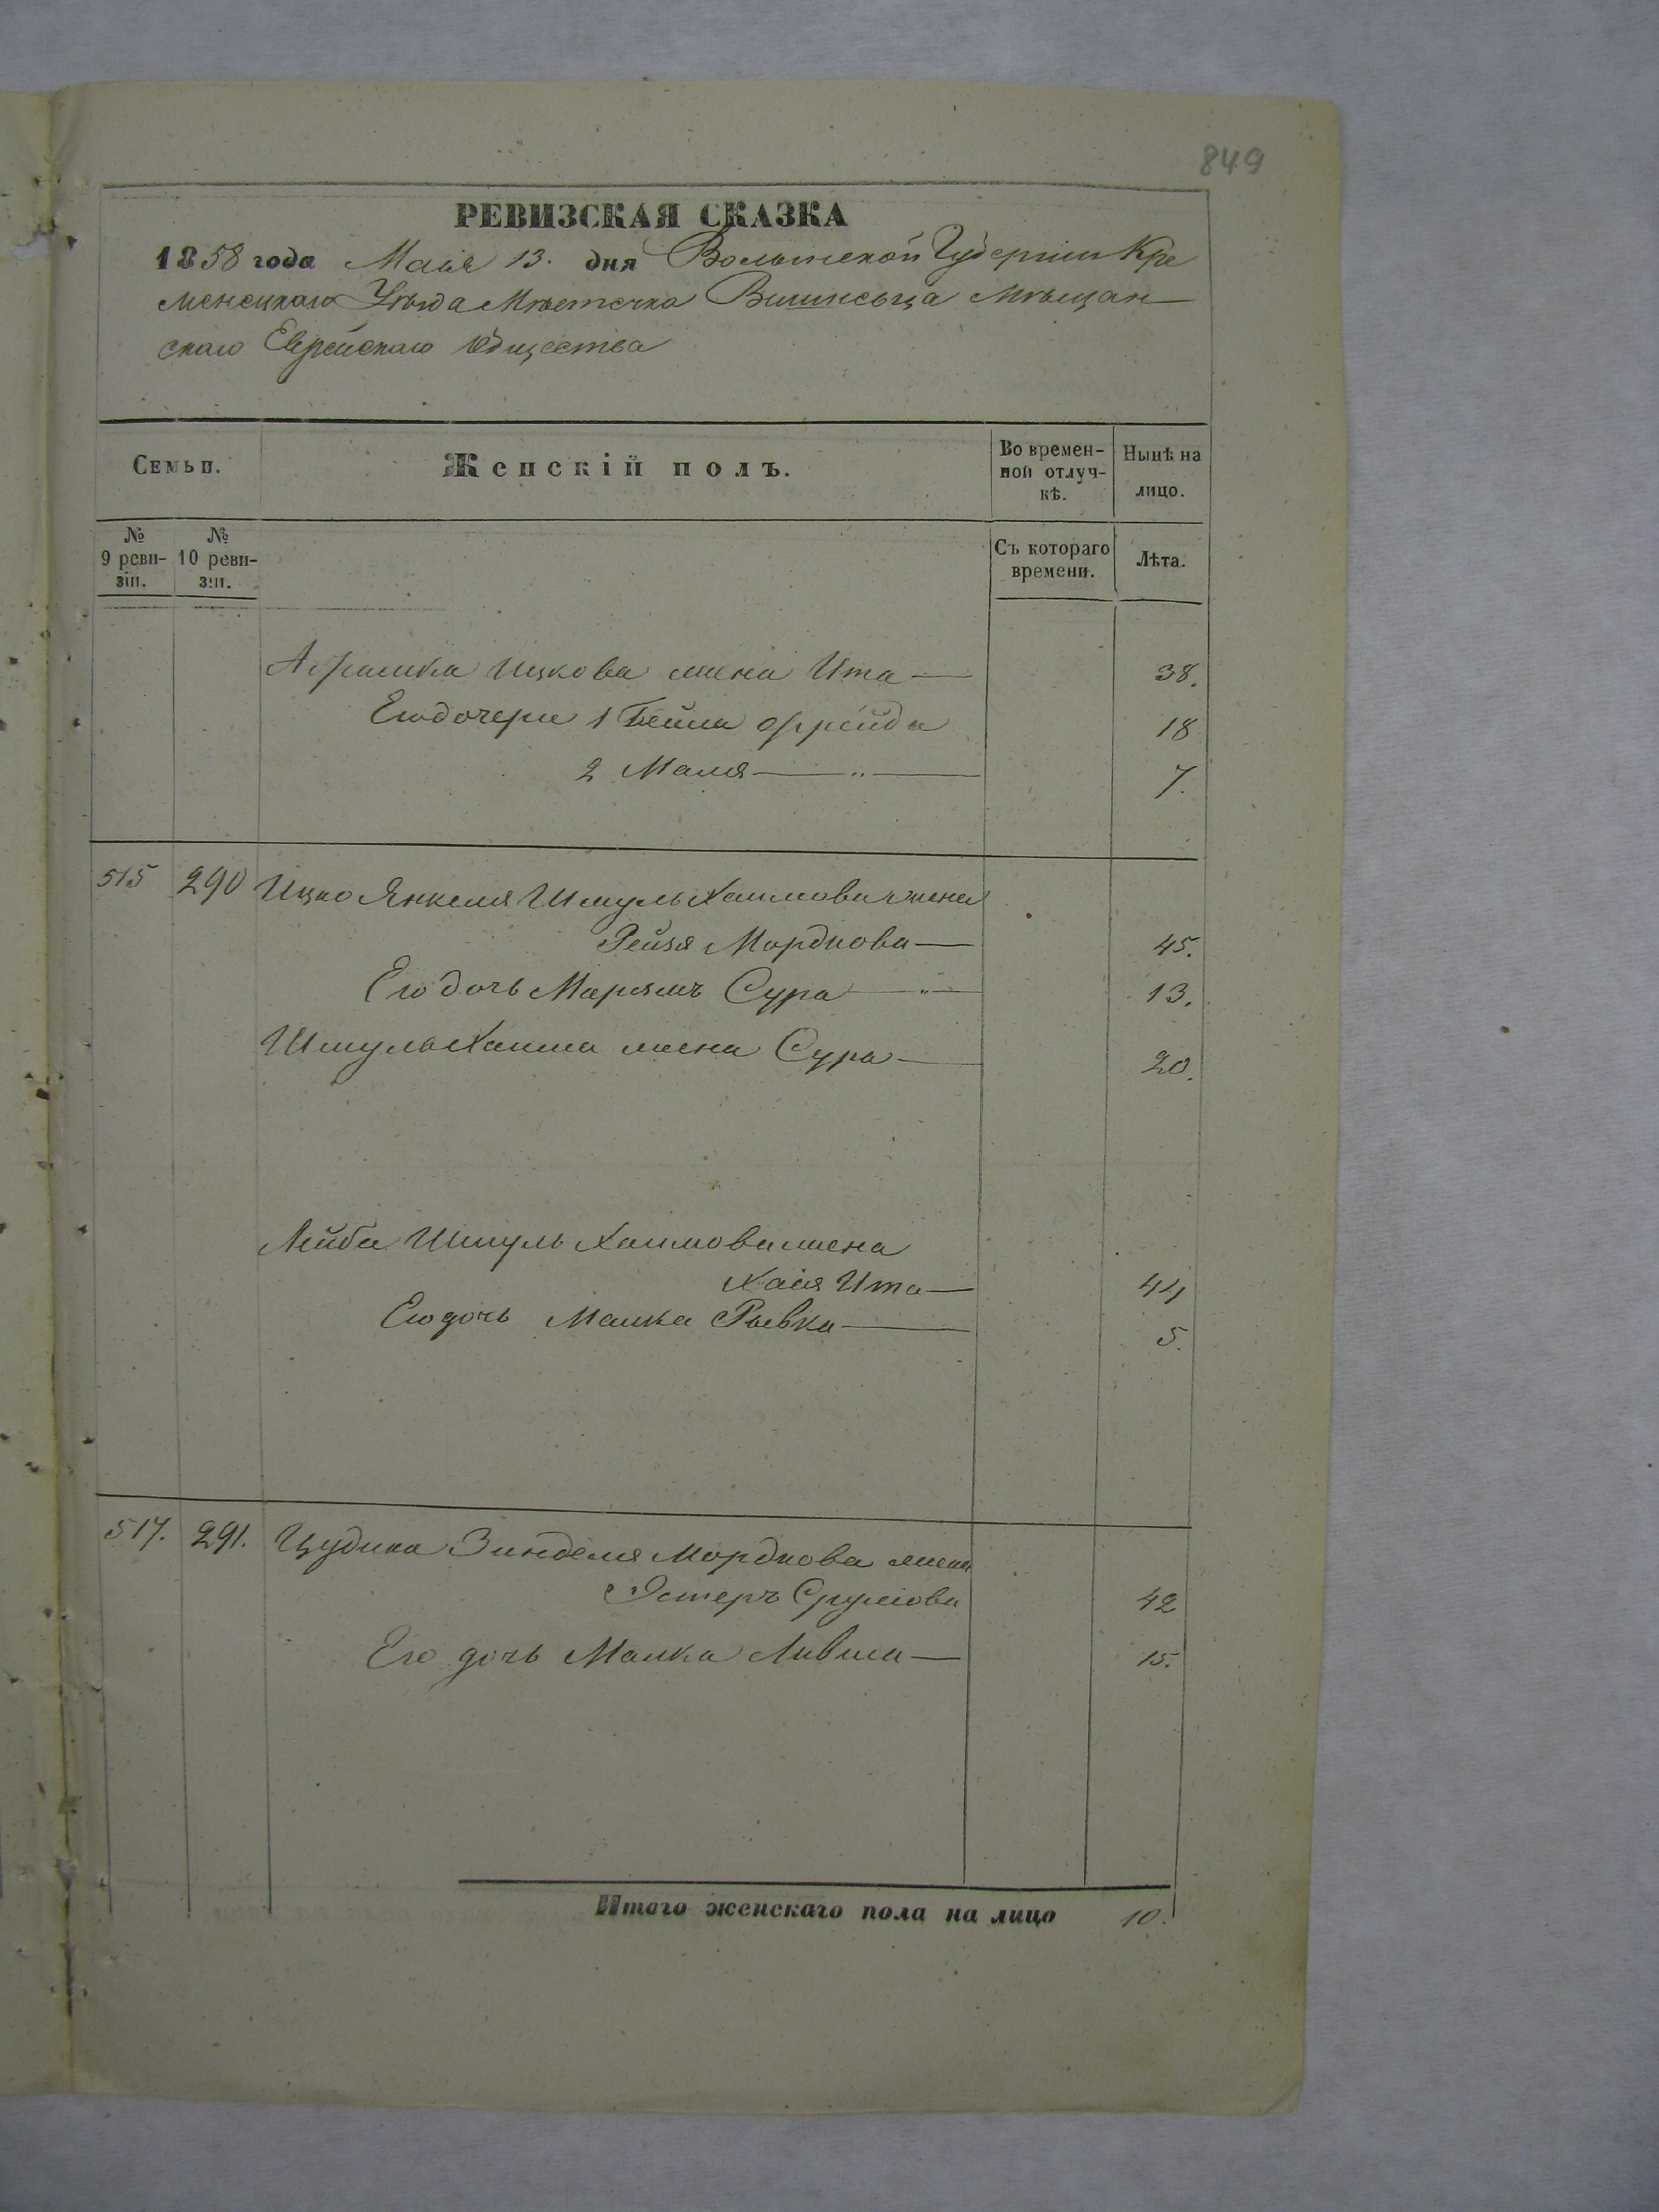 849
РЕВИЗСКАЯ СКАЗКА
1858 года Маія 13. дня Волынской Губерніи Кре
менецкаго Уѣзда Мѣстечка Вишневца Мѣщан
скаго Еврейскаго Общества
Семьи. Женскій полъ. Во времен-ной отлуч-кѣ. Нынѣ на лицо.
№ 9 реви-зіи. № 10 реви-зіи. Съ котораго времени. Лѣта.
Абрамка Ицкова жена Ита 38.
Его дочери 1 Бейла Фрейда 18
2 Маля 7.
515 290 Ицко Янкеля Шмуль Хаимова жена
Рейзя Мордкова 45.
Его дочь Марьямъ Сура 13.
Шмуль Хаима жена Сура 20.
Лейба Шмуль Хаимова жена
Хаія Ита 44
Его дочь Малка Рывка 5.
517. 291. Зинделя Мордкова жена
Эстеръ Срулiова 42
Его дочь Малка 15.
Итого женскаго пола на лицо 10.